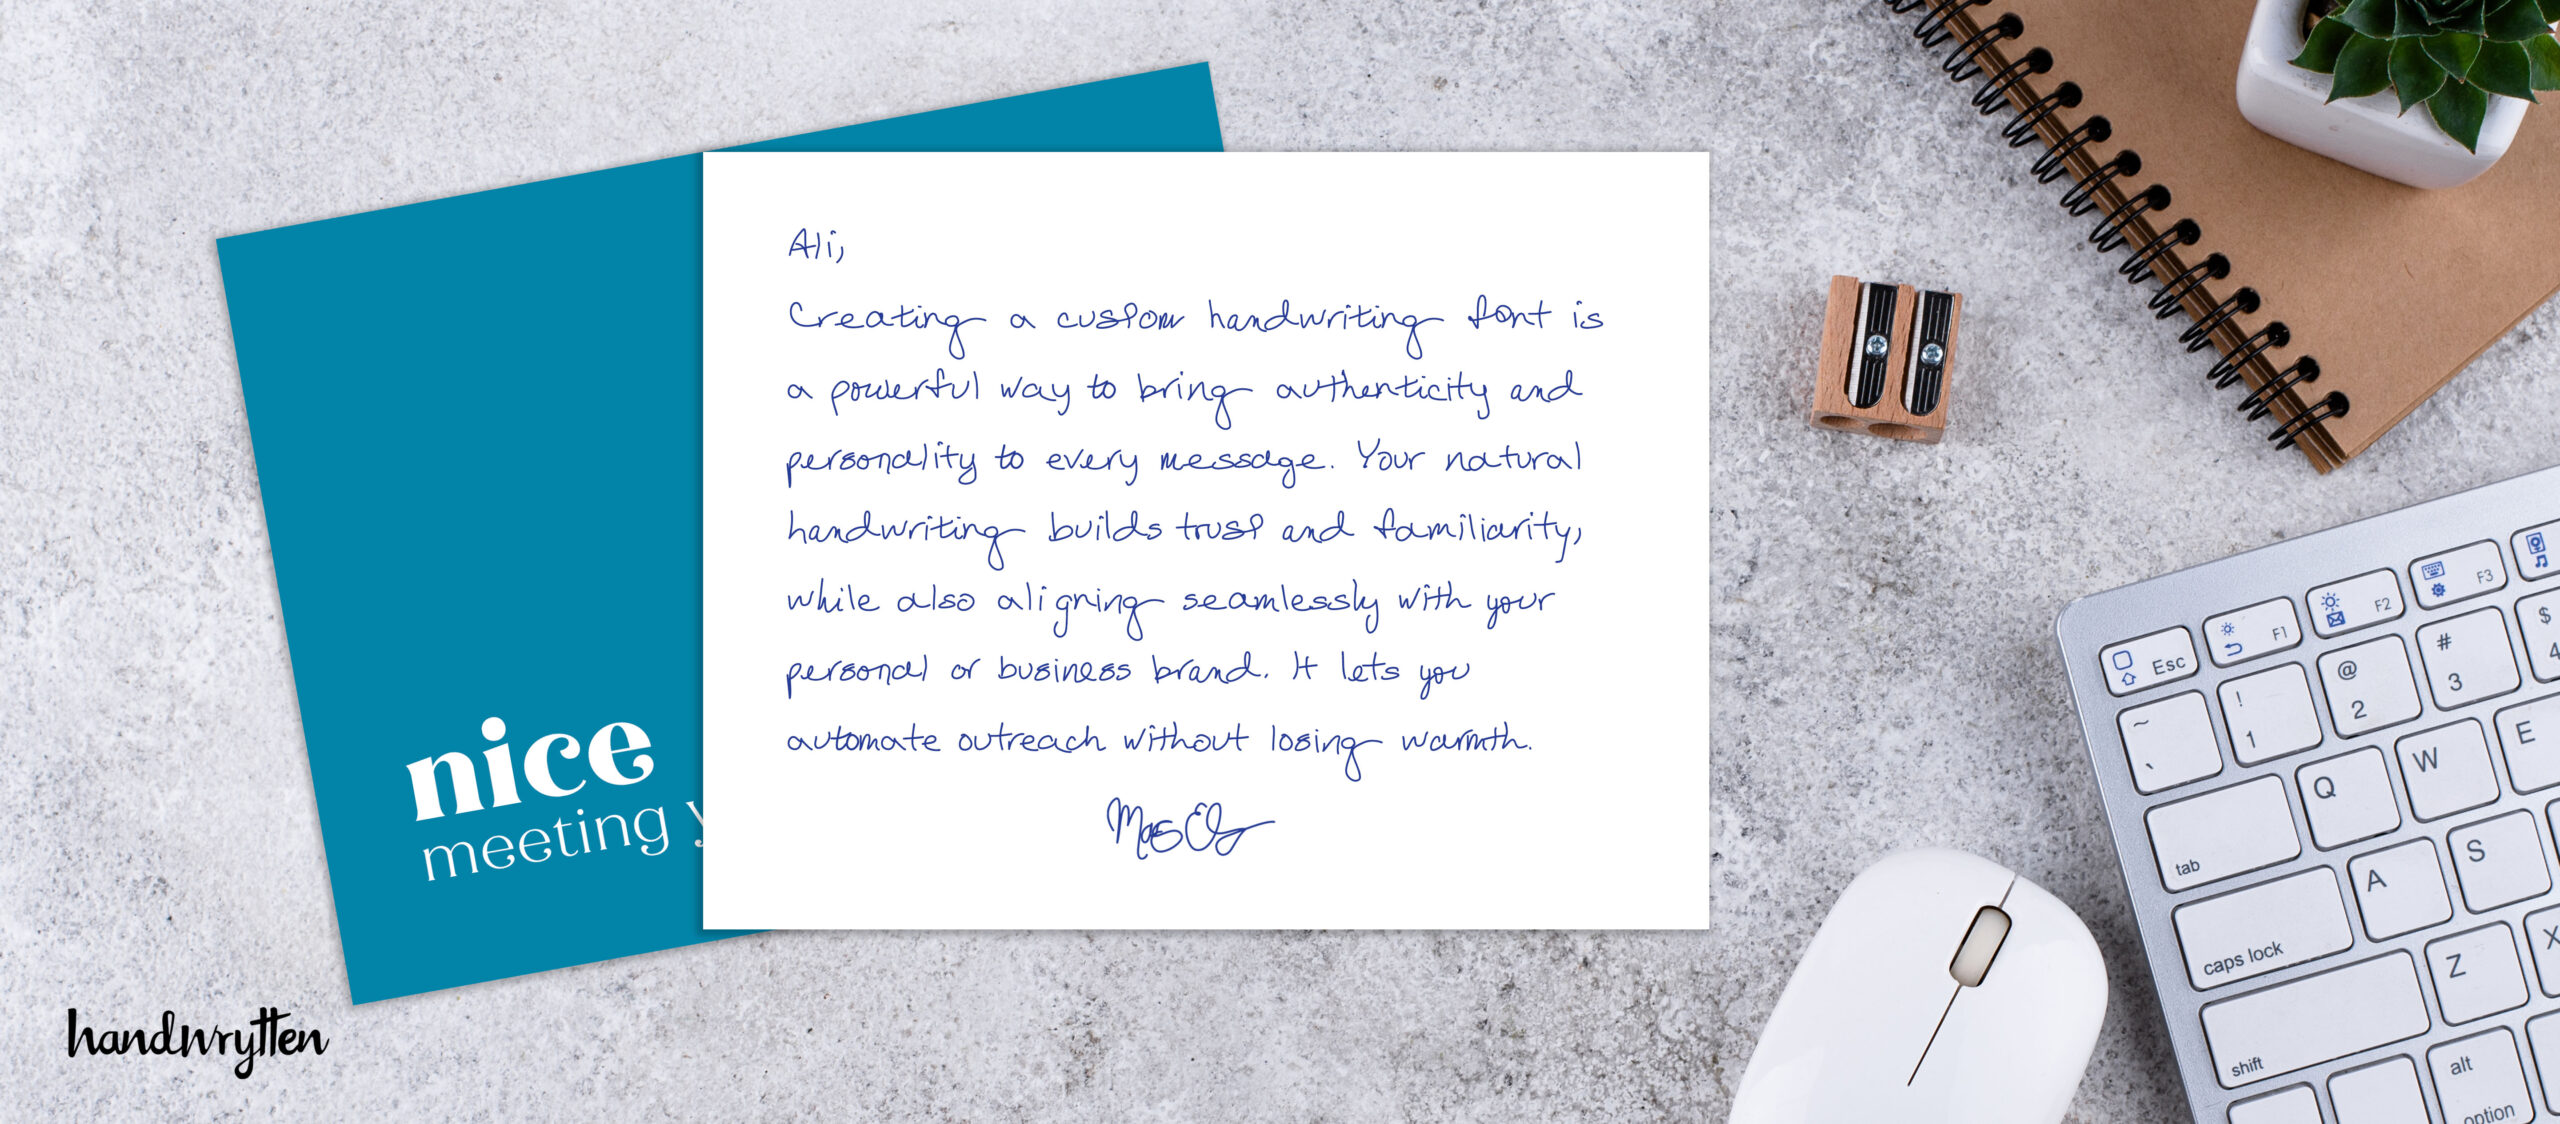 Ali,
Creating a custom handwriting font is
a powerful way to bring authenticity and
personality to every message. Your natural
handwriting builds trust and familiarity,
while also aligning seamlessly with your
personal or business brand. It lets you
automate outreach without losing warmth.
nice
meeting y
handwrytten
Esc
F1
F2
F3
~
`
!
1
@
2
#
3
$
4
tab
Q
W
E
caps lock
A
S
shift
Z
X
alt
option